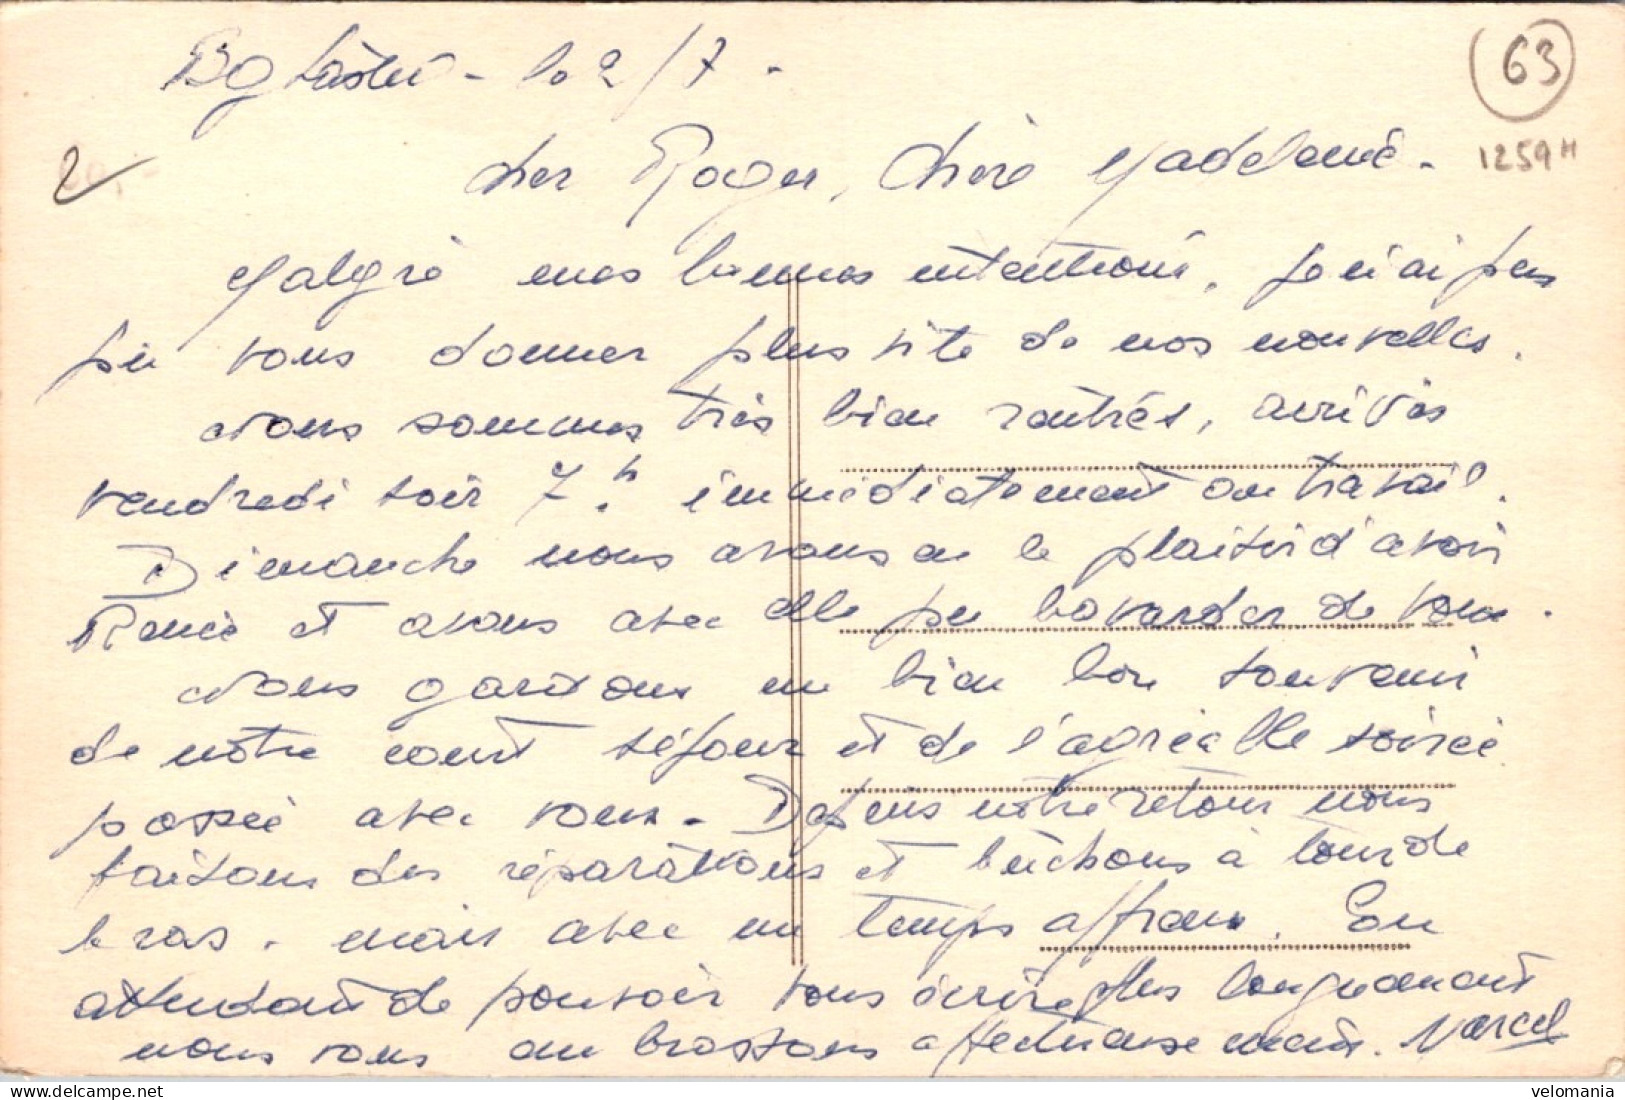 le 2/7.
63
1259 H
2
Cher Roger, Chère Madeleine.
Malgré mes bonnes intentions, je n'ai pas
pu vous donner plus vite de nos nouvelles.
Nous sommes très bien rentrés, arrivés
vendredi soir 7h. immédiatement au travail.
Dimanche nous avons eu le plaisir d'avoir
Renée et avons avec elle pu bavarder de vous.
Nous gardons un bien bon souvenir
de notre court séjour et de l'agréable soirée
passée avec vous. Depuis notre retour nous
faisons des réparations et bûchons à tour de
bras. mais avec un temps affreux. En
attendant de pouvoir vous écrire plus longuement
nous vous embrassons affectueusement. Marcel
delcampe.net
velomania